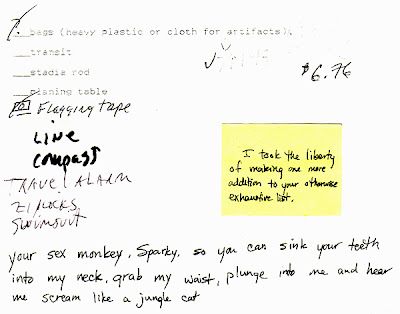 bags (heavy plastic or cloth for artifacts)
transit
$6.76
stadia rod
planing table
Flagging tape
LINE
compass
TRAVEL ALARM
ZIPLOCKS
SWIMSUIT
I took the liberty
of making one more
addition to your otherwise
exhaustive list.
your sex monkey, Sparky, so you can sink your teeth
into my neck, grab my waist, plunge into me and hear
me scream like a jungle cat